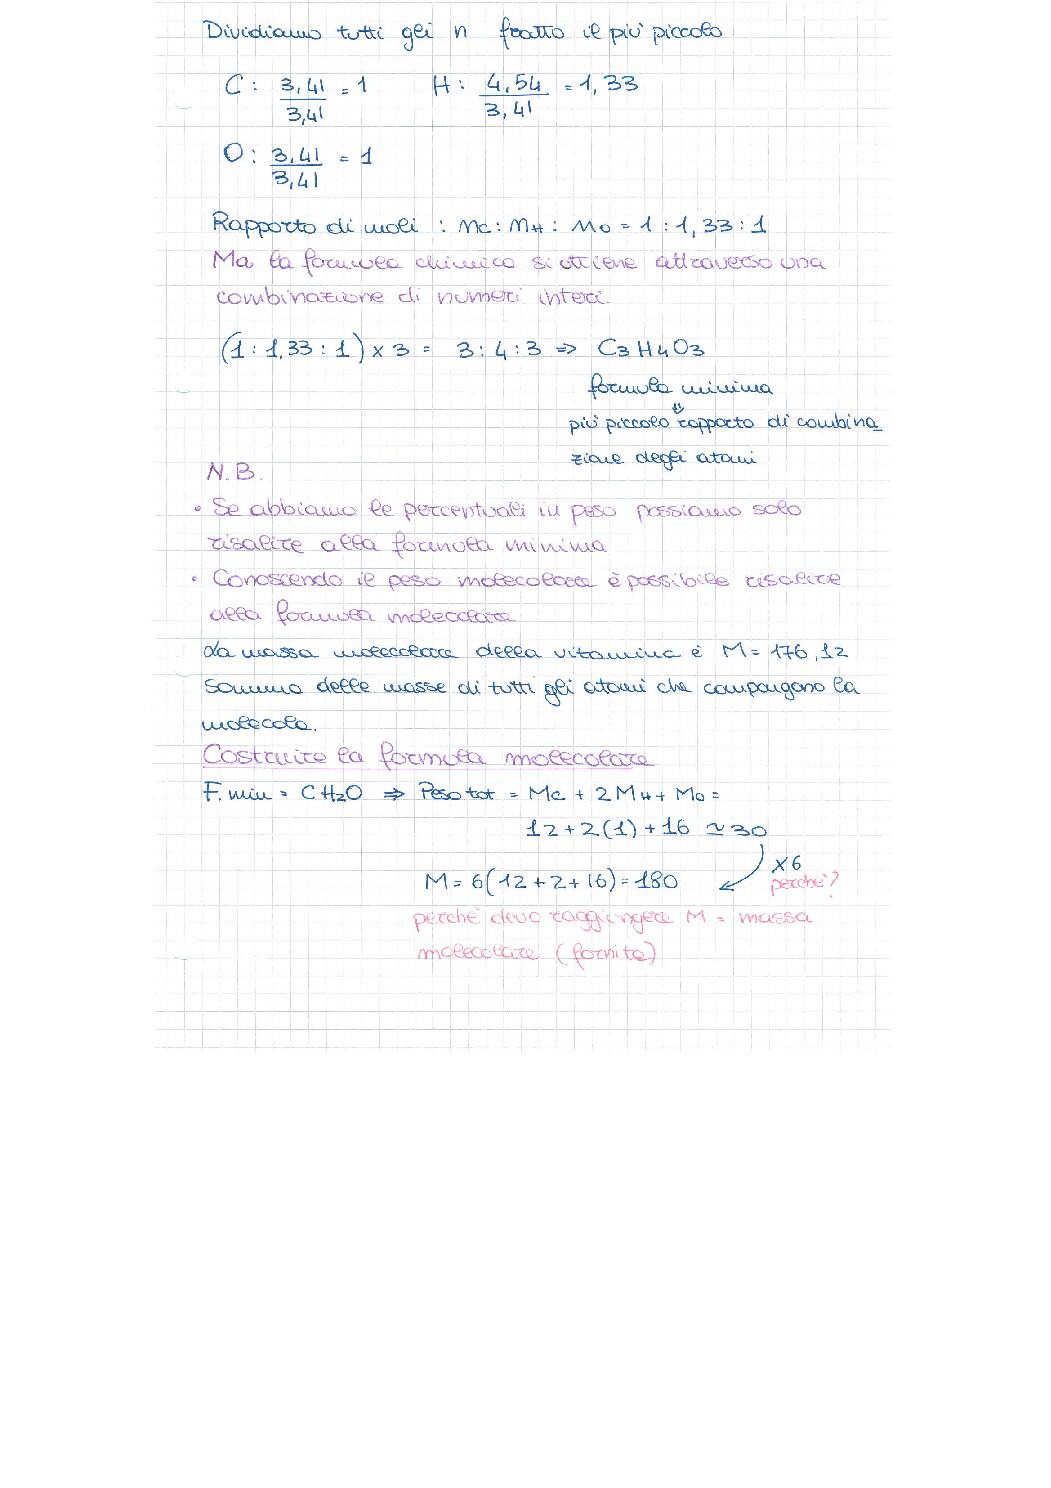 Dividiamo tutti gli n fratto il più piccolo
C: 3,41/3,41 = 1 H: 4,54/3,41 = 1,33
O: 3,41/3,41 = 1
Rapporto di moli : nc: nH : no = 1 : 1,33 : 1
Ma la formula chimica si ottiene attraverso una
combinazione di numeri interi.
(1 : 1,33 : 1) x 3 = 3 : 4 : 3 => C3H4O3
formula minima
⇓
più piccolo rapporto di combina_
zione degli atomi
N.B.
• Se abbiamo le percentuali in peso possiamo solo
risalire alla formula minima
• Conoscendo il peso molecolare è possibile risalire
alla formula molecolare
La massa molecolare della vitamina è M = 176,12
Somma delle masse di tutti gli atomi che compongono la
molecola.
Costruire la formula molecolare
F. min = CH2O => Peso tot = Mc + 2MH + Mo =
12 + 2(1) + 16 ≃ 30
x6
M = 6(12 + 2 + 16) = 180 perché?
perché devo raggiungere M = massa
molecolare (fornita)